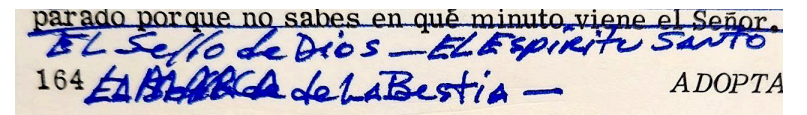 parado porque no sabes en qué minuto viene el Señor.
EL Sello de Dios — EL Espíritu Santo
164 LA MARCA de LA Bestia — ADOPTA